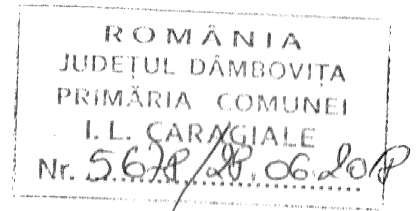 ROMÂNIA
JUDEȚUL DÂMBOVIȚA
PRIMĂRIA COMUNEI
I. L. CARAGIALE
Nr.